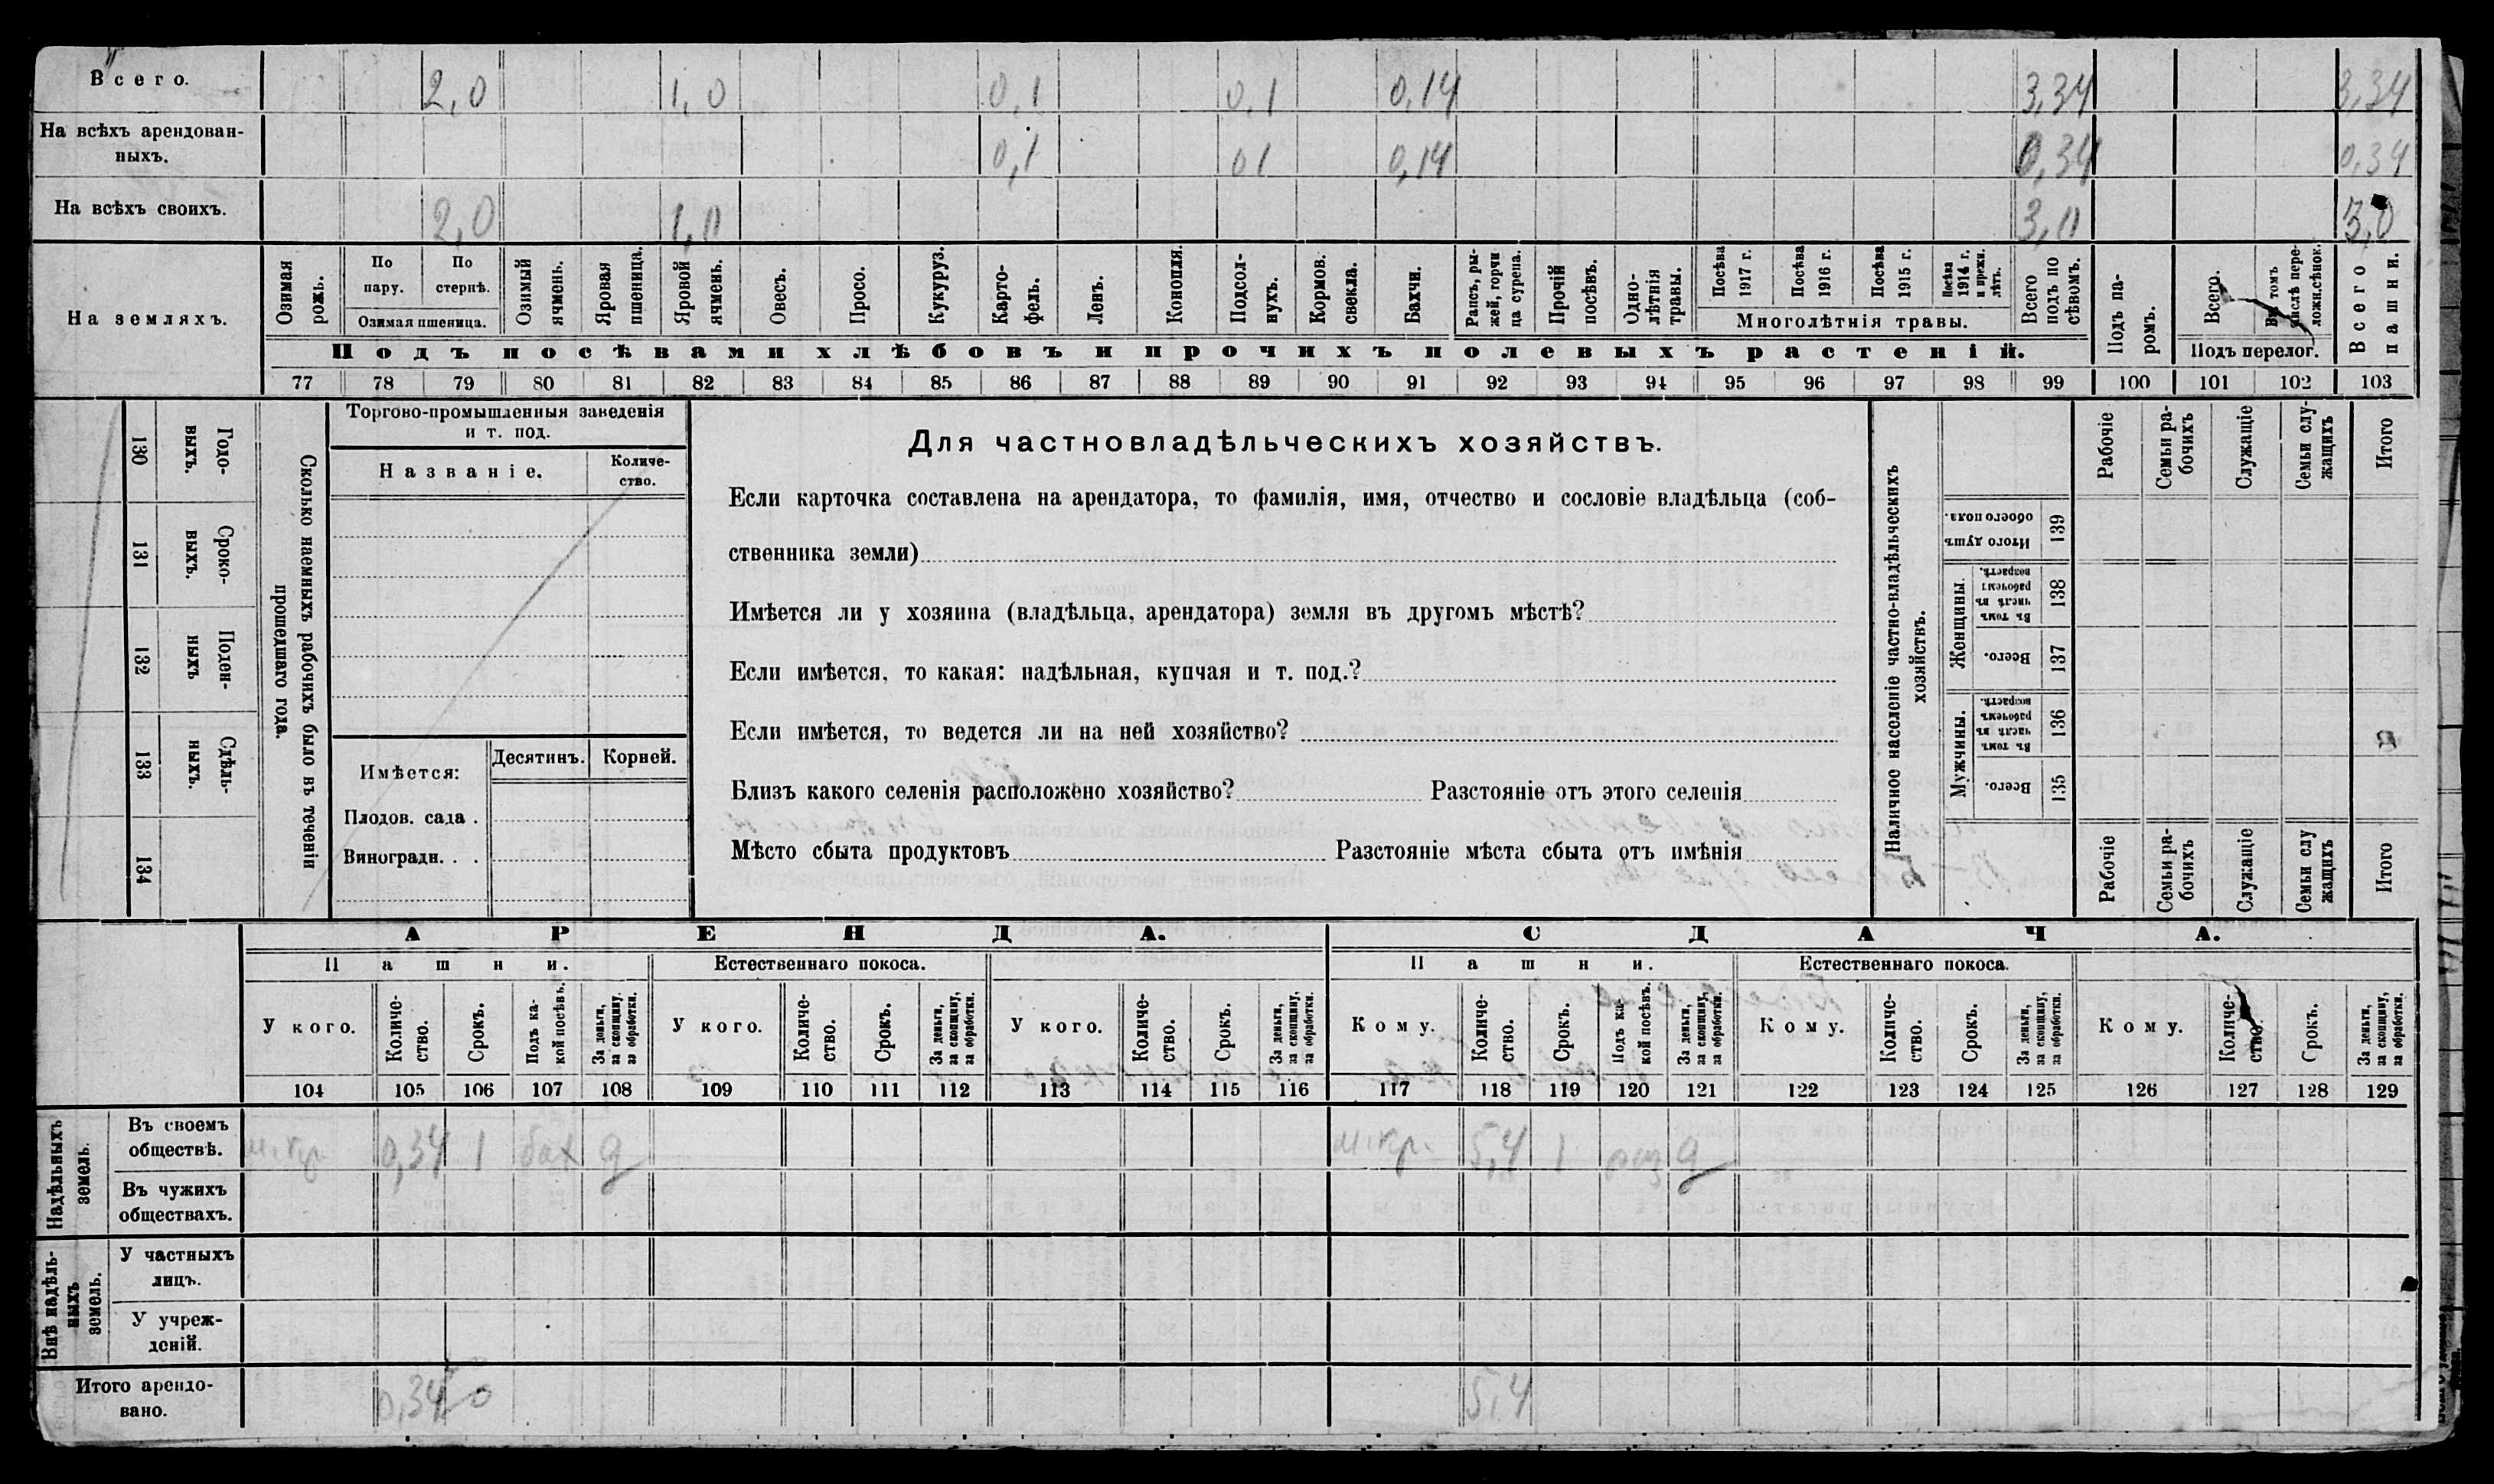 Всего. 2,0 1,0 0,1 0,1 0,14 3,34 3,34
На всѣхъ арендован-
ныхъ. 0,1 01 0,14 0,34 0,34
На всѣхъ своихъ. 2,0 1,0 3,0 3,0
На земляхъ.
Озимая
рожь.
По
пару.
По
стернѣ.
Озимая пшеница.
Озимый
ячмень.
Яровая
пшеница.
Яровой
ячмень.
Овесъ.
Просо.
Кукуруз.
Карто-
фель.
Ленъ.
Конопля.
Подсол-
нухъ.
Кормов.
свекла.
Бахчи.
Рапсъ, ры-
жей, горчи
ца сурепа.
Прочій
посѣвъ.
Одно-
лѣтнія
травы.
Посѣва
1917 г.
Посѣва
1916 г.
Посѣва
1915 г.
Посѣва
1914 г.
и прежн.
лѣтъ.
Многолѣтнія травы.
Всего
подъ по
сѣвомъ.
Подъ па-
ромъ.
Всего.
Въ томъ
числѣ пере-
ложн.сѣнок.
Подъ перелог.
Всего
пашни.
Подъ посѣвами хлѣбовъ и прочихъ полевыхъ растеній.
77 78 79 80 81 82 83 84 85 86 87 88 89 90 91 92 93 94 95 96 97 98 99 100 101 102 103
130 Годо-
выхъ.
131 Сроко-
выхъ.
132 Поден-
ныхъ
133 Сдѣль-
ныхъ.
134
Сколько наемныхъ рабочихъ было въ теченіи
прошедшаго года.
Торгово-промышленныя заведенія
и т. под.
Названіе.
Количе-
ство.
Имѣется:
Десятинъ. Корней.
Плодов. сада .
Виноградн. . .
Для частновладѣльческихъ хозяйствъ.
Если карточка составлена на арендатора, то фамилія, имя, отчество и сословіе владѣльца (соб-
ственника земли)
Имѣется ли у хозяина (владѣльца, арендатора) земля въ другомъ мѣстѣ?
Если имѣется, то какая: надѣльная, купчая и т. под.?
Если имѣется, то ведется ли на ней хозяйство?
Близъ какого селенія расположено хозяйство? Разстояніе отъ этого селенія
Мѣсто сбыта продуктовъ Разстояніе мѣста сбыта отъ имѣнія
Наличное населеніе частно-владѣльческихъ
хозяйствъ.
Рабочіе
Семьи ра-
бочихъ
Служащіе
Семьи слу-
жащихъ
Итого
Итого душъ
обоего пола.
139
Женщины.
Въ томъ
числѣ въ
рабочемъ
возрастѣ.
138
Всего.
137
Мужчины.
Въ томъ
числѣ въ
рабочемъ
возрастѣ.
136
Всего.
135
Рабочіе
Семьи ра-
бочихъ
Служащіе
Семьи слу
жащихъ
Итого
АРЕНДА. СДАЧА.
Пашни. Естественнаго покоса. Пашни. Естественнаго покоса.
У кого.
Количе-
ство.
Срокъ.
Подъ ка-
кой посѣвъ.
За деньги,
за скопщину,
за обработки.
У кого.
Количе-
ство.
Срокъ.
За деньги,
за скопщину,
за обработки.
У кого.
Количе-
ство.
Срокъ.
За деньги,
за скопщину,
за обработки.
Кому.
Количе-
ство.
Срокъ.
Подъ ка-
кой посѣвъ.
За деньги,
за скопщину,
за обработки.
Кому.
Количе-
ство.
Срокъ.
За деньги,
за скопщину,
за обработки.
Кому.
Количе-
ство.
Срокъ.
За деньги,
за скопщину,
за обработки.
104 105 106 107 108 109 110 111 112 113 114 115 116 117 118 119 120 121 122 123 124 125 126 127 128 129
Надѣльныхъ
земель.
Въ своемъ
обществѣ. 0,34 1 бах д 5,4 1 д
Въ чужихъ
обществахъ.
Внѣ надѣль-
ныхъ
земель.
У частныхъ
лицъ.
У учреж-
деній.
Итого арендо-
вано. 0,34 5,4